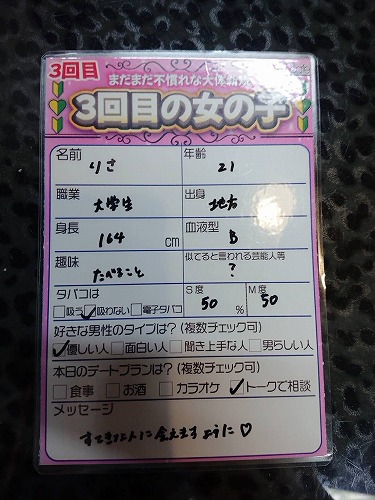 3回目
まだまだ不慣れな大体新
3回目の女の子
名前 りさ 年齢 21
職業 大学生 出身 地方
身長 164 cm 血液型 B
趣味 たべること 似てると言われる芸能人等 ?
タバコは S度 M度
□吸う ☑吸わない □電子タバコ 50 % 50
好きな男性のタイプは?(複数チェック可)
☑優しい人 □面白い人 □聞き上手な人 □男らしい人
本日のデートプランは?(複数チェック可)
□食事 □お酒 □カラオケ ☑トークで相談
メッセージ
すてきな人に会えますように♡